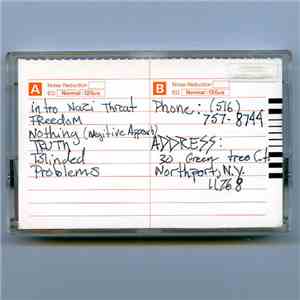 A Noise Reduction
EQ Normal
Intro Nazi Threat
Freedom
Nothing (Negitive Approch)
TRUTH
Blinded
Problems
B Noise Reduction
EQ Normal
Phone: (516)
757-8744
ADDRESS:
30 Green tree Ct.
Northport, N.Y.
11768